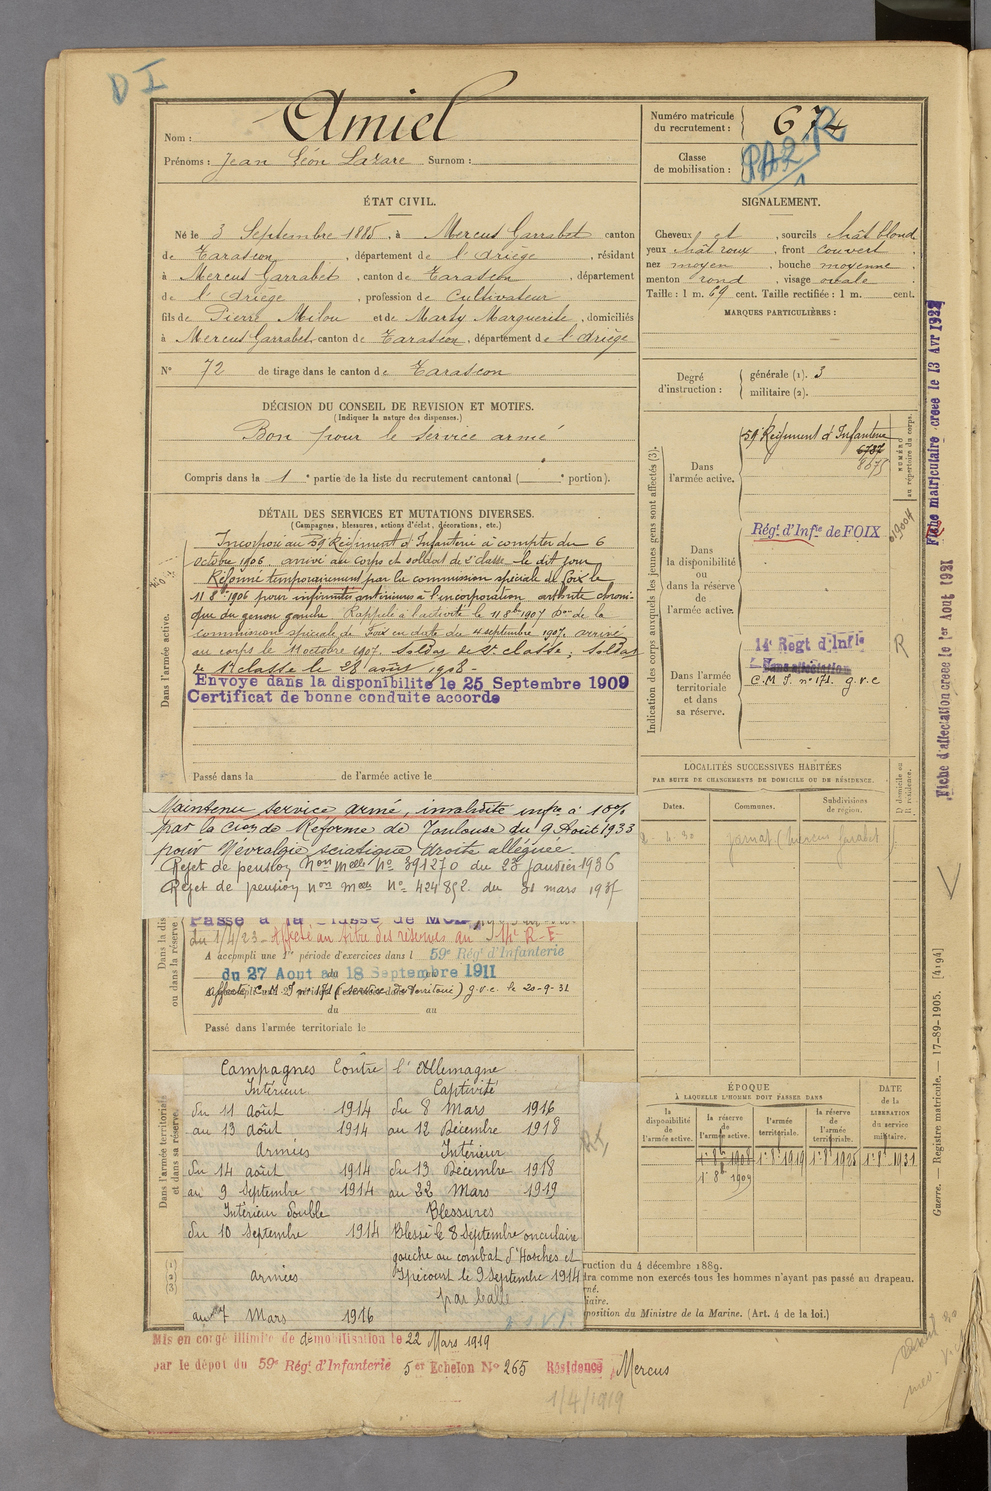 D I
Nom : Amiel
Prénoms : Jean Léon Lazare Surnom :
Numéro matricule du recrutement : 674
Classe de mobilisation :
PA2 R
1
ÉTAT CIVIL.
Né le 3 Septembre 1885, à Mercus Garrabet canton
de Tarascon, département de l'Ariège, résidant
à Mercus Garrabet, canton de Tarascon, département
de l'Ariège, profession de Cultivateur
fils de Pierre Milou et de Marty Marguerite, domiciliés
à Mercus Garrabet, canton de Tarascon, département de l'Ariège
N° 72 de tirage dans le canton de Tarascon
SIGNALEMENT.
Cheveux et, sourcils chât blond
yeux chât roux, front couvert
nez moyen, bouche moyenne
menton rond, visage ovale
Taille : 1 m. 69 cent. Taille rectifiée : 1 m. cent.
MARQUES PARTICULIÈRES :
Degré d'instruction : générale (1). 3
militaire (2).
DÉCISION DU CONSEIL DE REVISION ET MOTIFS.
(Indiquer la nature des dispenses.)
Bon pour le service armé
Compris dans la 1e partie de la liste du recrutement cantonal ( e portion).
DÉTAIL DES SERVICES ET MUTATIONS DIVERSES.
(Campagnes, blessures, actions d'éclat, décorations, etc.)
Dans l'armée active.
Incorporé au 59 Régiment d'Infanterie à compter du 6
octobre 1906, arrivé au corps et soldat de 2e classe le dit jour
Réformé temporairement par la commission spéciale de Foix le
11 8bre 1906 pour infirmités antérieures à l'incorporation arthrite chroni-
que du genou gauche. Rappelé à l'activité le 11 8bre 1907 Don de la
commission spéciale de Foix en date du 4 septembre 1907, arrivé
au corps le 11 octobre 1907. Soldat de 2e classe ; Soldat
de 1e classe le 28 août 1908 -
Envoye dans la disponibilité le 25 Septembre 1909
Certificat de bonne conduite accorde
Passé dans la de l'armée active le
Maintenu service armé, invalidité infre à 10%
par la Cion de Réforme de Toulouse du 9 Août 1933
pour Névralgie sciatique droite alléguée.
Rejet de pension Non Melle N° 391270 du 23 Janvier 1936
Rejet de pension non Melle N° 424892 du 31 mars 1937
Passé à la Classe de
du 1/4/23 - Affecté au titre des réserves au 14e R.I
A accompli une 1re période d'exercices dans l 59e Régt d'Infanterie
du 27 Aout au 18 Septembre 1911
affecté C.M.I n° 171 (service de Territoire) g.v.c. le 20-9-31
du au
Passé dans l'armée territoriale le
Dans l'armée territoriale et dans sa réserve.
Campagnes Contre l'Allemagne
Intérieur
du 11 Août 1914
au 13 Août 1914
Armées
du 14 août 1914
au 9 Septembre 1914
Intérieur double
du 10 Septembre 1914
armées
au 7 Mars 1916
Captivité
du 8 Mars 1916
au 12 Décembre 1918
Intérieur
du 13 Décembre 1918
au 22 Mars 1919
Blessures
Blessé le 8 Septembre
gauche au combat d'
Ipécourt le 9 Septembre 1914
par balle
Mis en congé illimité de démobilisation le 22 Mars 1919
par le dépot du 59e Régt d'Infanterie 5er Echelon N° 265 Résidence Mercus
1/4/1919
Indication des corps auxquels les jeunes gens sont affectés (3).
Dans l'armée active.
59 Régiment d'Infanterie
6787
8675
NUMÉRO au répertoire du corps.
Dans la disponibilité ou dans la réserve de l'armée active.
Régt d'Infie de FOIX
Dans l'armée territoriale et dans sa réserve.
14e Regt d'Infie
Sans affectation
C.M I. n° 171. g.v.c
R
LOCALITÉS SUCCESSIVES HABITÉES
PAR SUITE DE CHANGEMENTS DE DOMICILE OU DE RÉSIDENCE.
Dates. Communes. Subdivisions de région. D domicile ou R résidence.
2-4-30
ÉPOQUE
À LAQUELLE L'HOMME DOIT PASSER DANS
la disponibilité de l'armée active. la réserve de l'armée active. l'armée territoriale. la réserve de l'armée territoriale.
DATE de la LIBÉRATION du service militaire.
1e 8b 1908 1e 8b 1919 1e 8b 1925 1e 8b 1931
1e 8b 1909
ruction du 4 décembre 1889.
dra comme non exercés tous les hommes n'ayant pas passé au drapeau.
né.
iaire.
position du Ministre de la Marine. (Art. 4 de la loi.)
Fiche matriculaire creee le 13 Avr 1922
Fiche d'affectation creee le 1er Aout 1921
Guerre. — Registre matricule. — 17-89-1905. [4194]